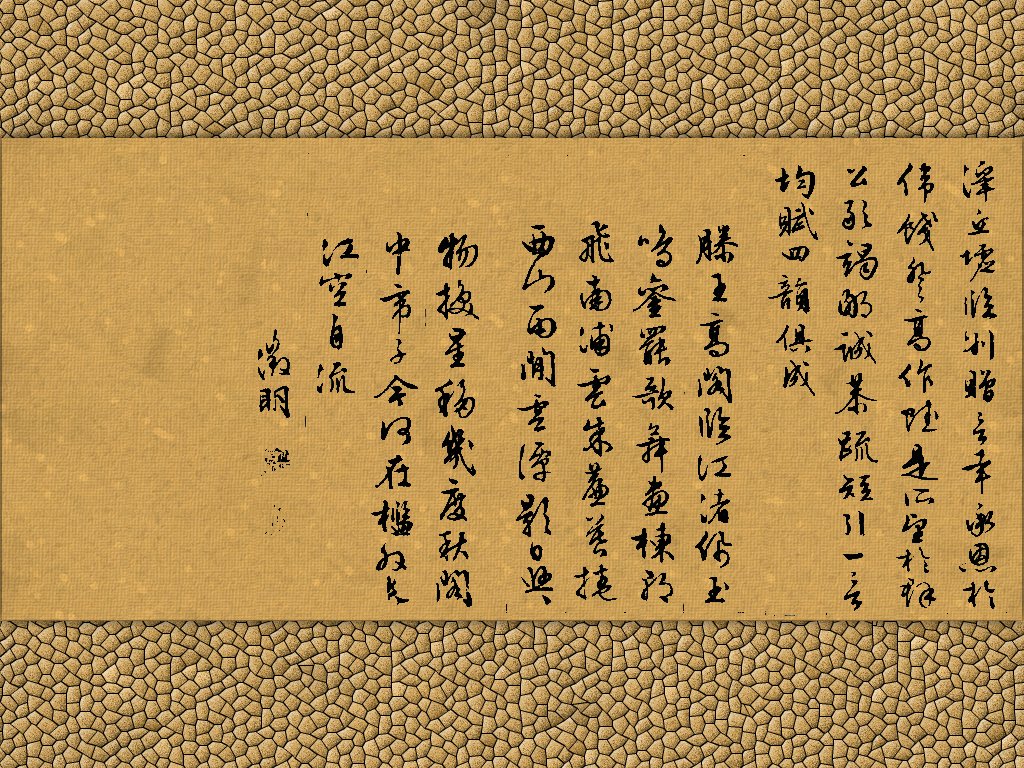 澤丘墟臨別贈言幸承恩於
偉餞登高作賦是所望於群
公敢竭鄙誠恭疏短引一言
均賦四韻俱成
滕王高閣臨江渚佩玉
鳴鑾罷歌舞畫棟朝
飛南浦雲朱簾暮捲
西山雨閒雲潭影日悠〻
物換星移幾度秋閣
中帝子今何在檻外長
江空自流
徵明